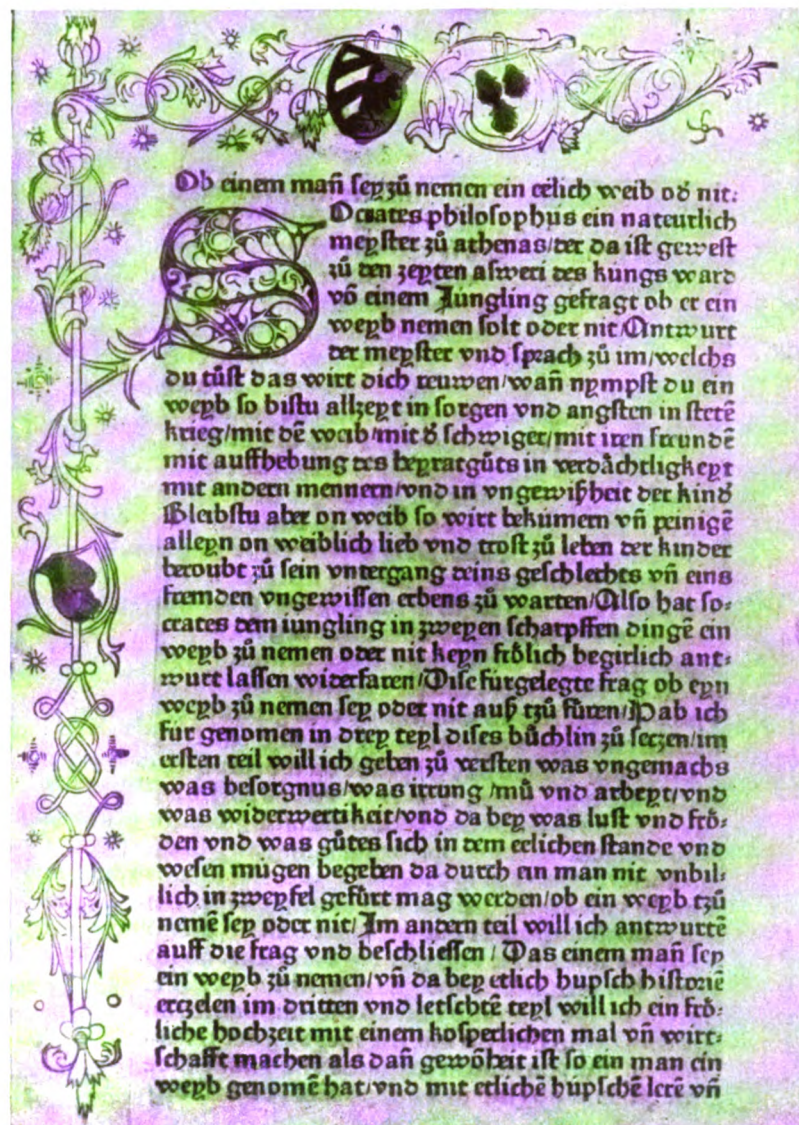 Ob einem mañ sey zů nemen ein eelich weib oď nit:
SOcrates philosophus ein nateurlich
meyster zů athenas/der da ist gewest
zů den zeyten asweri des kungs ward
võ einem Jungling gefragt ob er ein
weyb nemen solt oder nit/Antwurt
der meyster vnd sprach zů im/welchs
du tůst das wirt dich reuwen/wañ nympst du ein
weyb so bistu allzeyt in sorgen vnd angsten in stetẽ
krieg/mit dẽ weib/mit ď schwiger/mit iren freundẽ
mit auffhebung des heyratgůts in verdåchtligkeyt
mit andern mennern/vnd in vngewißheit der kinď
Bleibstu aber on weib so wirt bekümern vñ peinigẽ
alleyn on weiblich lieb vnd trost zů leben der kinder
beroubt zů sein vntergang deins geschlechts vñ eins
fremden vngewissen erbens zů warten/Also hat so⸗
crates dem iungling in zweyen scharpffen dingẽ ein
weyb zů nemen oder nit keyn frőlich begirlich ant⸗
wurt lassen widerfaren/Dise fürgelegte frag ob eyn
weyb zů nemen sey oder nit auß tzů füren/Hab ich
für genomen in drey teyl dises bůchlin zů seczen/im
ersten teil will ich geben zů versten was vngemachs
was besorgnus/was irrung/mů vnd arbeyt/vnd
was widerwertikait/vnd da bey was lust vnd frő⸗
den vnd was gůtes sich in dem eelichen stande vnd
wesen mügen begeben da durch ein man nit vnbil⸗
lich in zweyfel gefürt mag werden/ob ein weyb tzů
nemẽ sey oder nit/Im andern teil will ich antwurtẽ
auff die frag vnd beschliessen/Das einem mañ sey
ein weyb zů nemen/vñ da bey etlich hupsch historiẽ
erczelen im dritten vnd letschtẽ teyl will ich ein frő⸗
liche hochzeit mit einem kosperlichen mal vñ wirt⸗
schafft machen als dañ gewőheit ist so ein man ein
weyb genomẽ hat/vnd mit etlichẽ hupschẽ lerẽ vñ